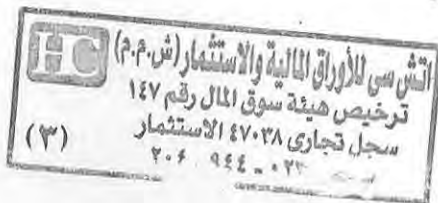 HC
اتش سى للأوراق المالية والاستثمار (ش.م.م)
ترخيص هيئة سوق المال رقم ١٤٧
سجل تجارى ٤٧٠٣٨ الاستثمار
(٣)
٢٠٦ ٩٤٤ - ٠٢٣